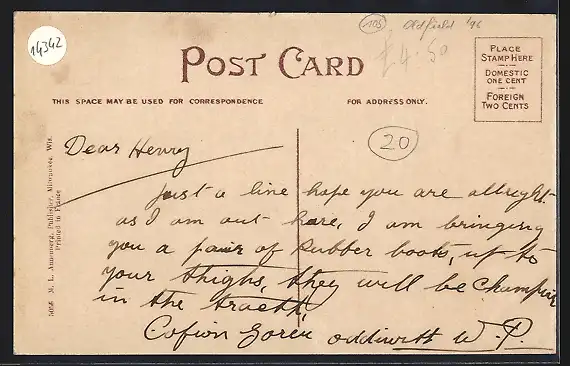 14342
105 Oldfield '96
£4.50
POST CARD
PLACE
STAMP HERE
DOMESTIC
ONE CENT
FOREIGN
TWO CENTS
THIS SPACE MAY BE USED FOR CORRESPONDENCE
FOR ADDRESS ONLY.
20
5056 M. L. Annenberg, Publisher, Milwaukee, Wis.
Printed in France
Dear Henry
just a line hope you are allright
as I am out here, I am bringing
you a pair of Rubber boots, up to
your thighs, they will be champion
in the
Cofion Goreu W. P.